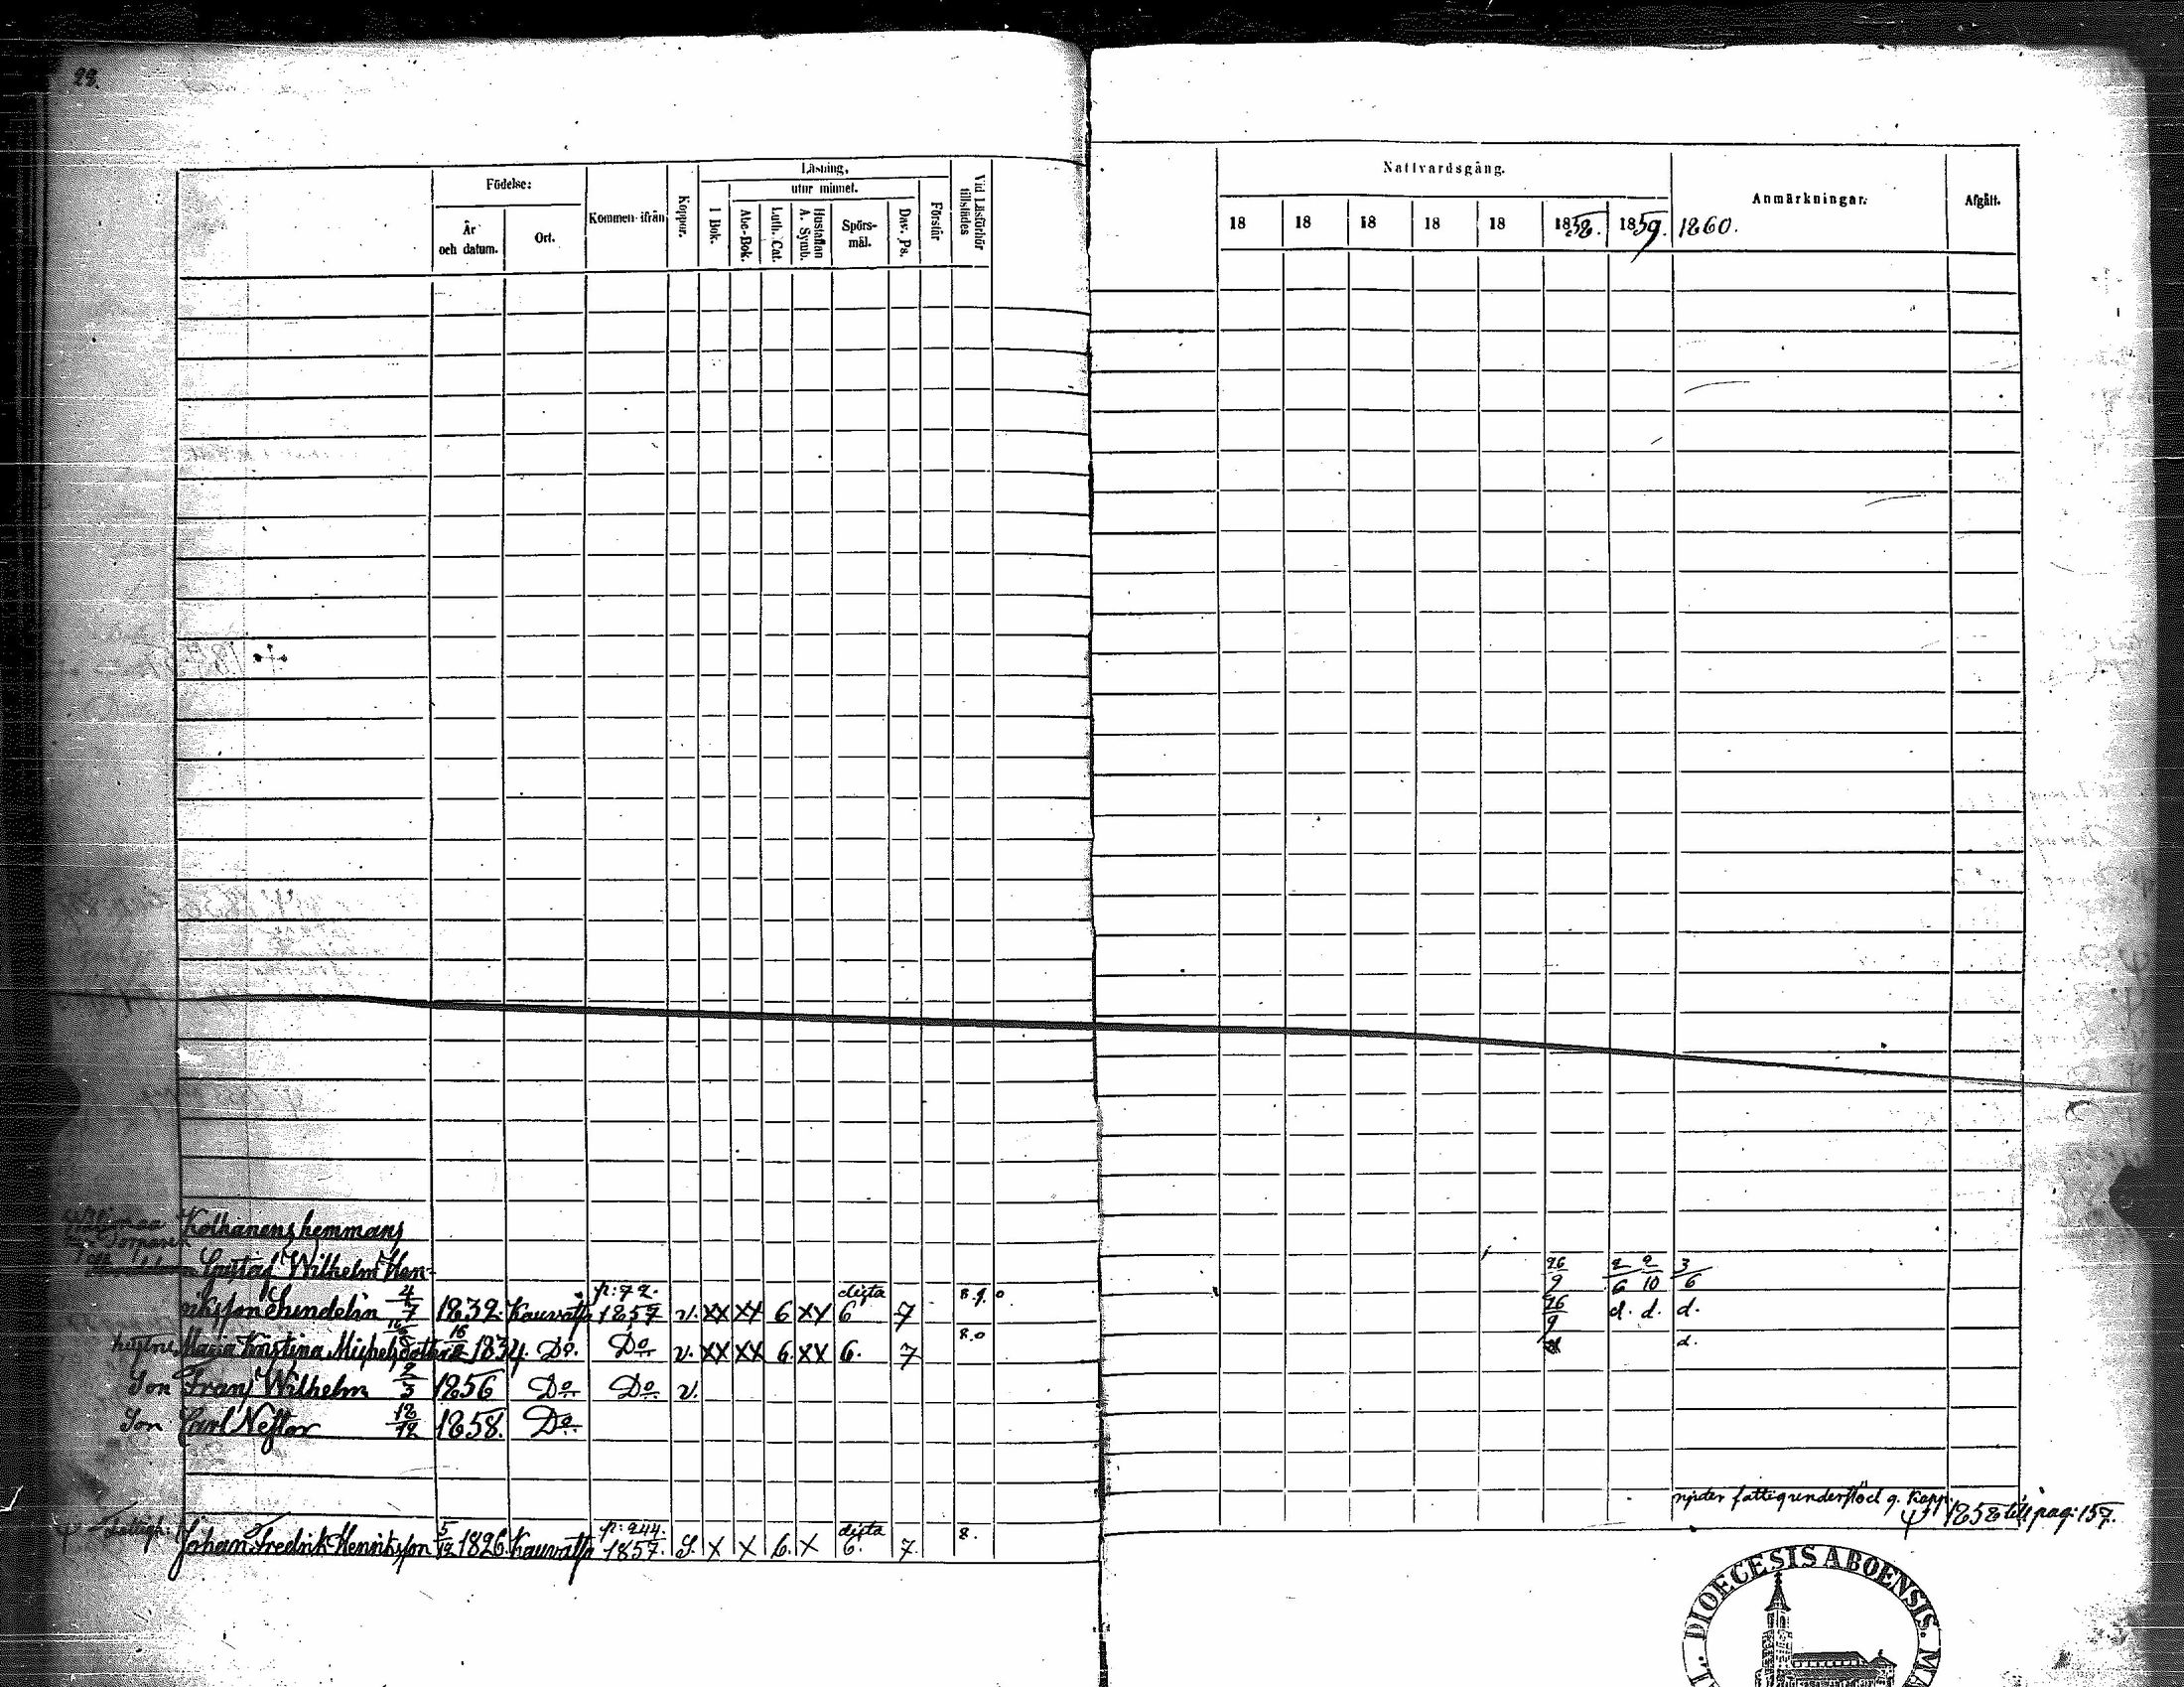 22.
Födelse:
År och datum.
Ort.
Kommen ifrån
Koppor.
Läsning,
utur minnet.
I Bok.
Abc-Bok.
Luth. Cat.
Hustaflan A. Symb.
Spörs-mål.
Dav. Ps.
Förstår
Vid Läsförhör tillstädes
Nattvardsgång.
18 18 18 18 18 1858. 1859. 1860.
Anmärkningar.
Afgått.
Kolhanens hemmans
Torparen
Gustaf Wilhelm Hen- 26/9 2/6 2/10 3/6
riksson Sundelin 4/7 1832. Kauvatsa p: 72. 1857 v. XX XX 6 XX dista 6 7 8.9.0 26/9 d. d. d.
hustru Maria Kristina Michelsdotter 16 1834. Do. Do. v. XX XX 6. XX 6. 7 8.0 d.
Son Frans Wilhelm 2/3 1856 Do Do v.
Son Carl Nestor 12/12 1858. Do
Fattigh. Johan Fredrik Henriksson 5/12 1826. Kauvatsa p: 244. 1857. S. X X 6. X dista 6. 7. 8. 1858 till pag: 157.
DIOECESIS ABOENSIS.